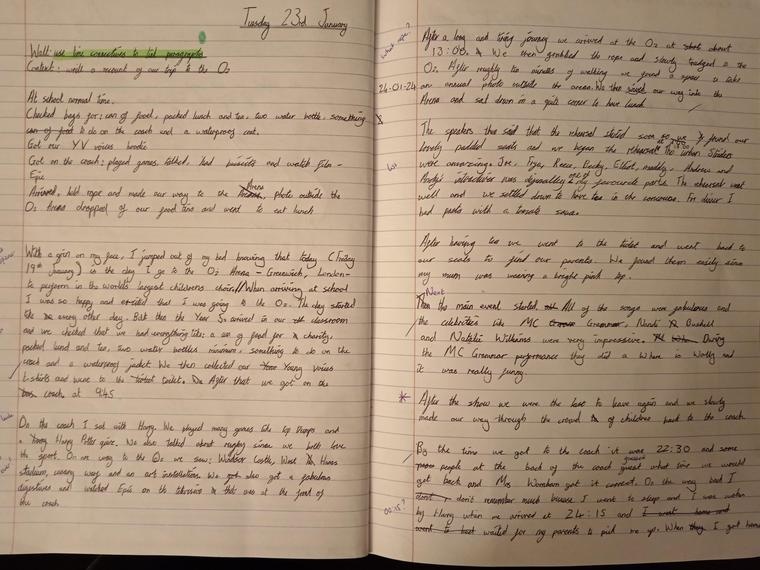 Tuesday 23rd January
Walt: use time connectives to link paragraphs
Context: write a recount of our trip to the O2
At school normal time.
Checked bags for: can of food, packed lunch and tea, two water bottle, something
can of food to do on the coach and a waterproof coat.
Got our YV voices hoodie
Got on the coach: played games, talked, had biscuits and watch film -
Epic
Arrived, held rope and made our way to the Arena, photo outside the
O2 Arena dropped of our food tins and went to eat lunch
With a grin on my face, I jumped out of my bed knowing that today (Friday
19th January) is the day I go to the O2 Arena - Greenwich, London -
to perform in the worlds largest childrens choir.//When arriving at school
I was so happy and excited that I was going to the O2. The day started
like every other day. But then the Year 5s arrived in our classroom
and we checked that we had everything like: a can of food for charity,
packed lunch and tea, two water bottles minimum, something to do on the
coach and a waterproof jacket. We then collected our Young voices
t-shirts and went to the toilet. After that we got on the
coach at 9:45
On the coach I sat with Harry. We played many games like top trumps and
a Harry Potter quize. We also talked about rugby since we both love
the sport. On are way to the O2 we saw; Windsor Castle, West Hams
stadium, canary warf and an art installation. We also got a fabulous
digestives and watched Epic on the television that was at the front of
the coach
After a long and tiring journey we arrived at the O2 at about
13:00. We then grabbed the rope and slowly trudged to the
O2. After roughly ten minutes of walking we found a space to take
24-01-24
an annual photo outside the arena. We then made our way into the
Arena and sat down in a quite corner to have lunch
The speakers then said that the rehersal started soon so we found our
lovely padded seats and we began the rehersal at 15:00. The Urban Strides
were amazing. Joe, Freya, Reece, Becky, Elliot, maddy, Andrew and
well and we settled down to have tea in the concourse. For dinner I
had pasta with a tomato sause.
After having tea we went to the toilet and went back to
our seats to find our parents. We found them easily since
my mum was wearing a bright pink top.
Next
Then the main event started. All of the songs were fabulous and
the celebrities like MC Grammar, Nandi Bushell
and Natalie Williams were very impressive. During
the MC Grammar performance they did a Where is Wally and
it was really funny.
* After the show we were the last to leave again and we slowly
made our way through the crowd of children back to the coach
By the time we got to the coach it was 22:30 and some
people at the back of the coach guessed what time we would
get back and Mrs Wareham got it correct. On the way back I
don't don't remember much because I went to sleep and I was woken
00:15?
by Harry when we arrived at 24:15 and I went home and
went to bed waited for my parents to pick me up. When they I got home